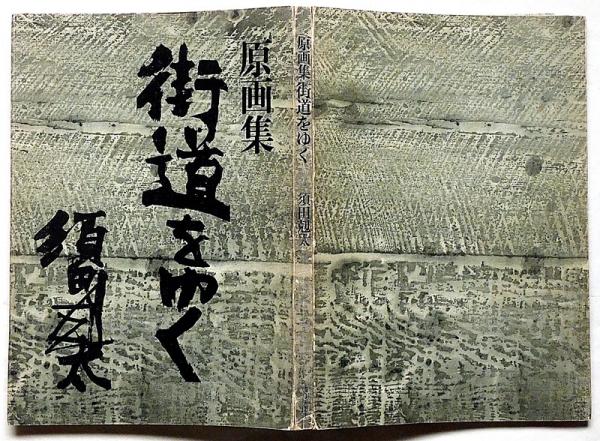 原画集
街道をゆく
須田剋太
原画集 街道をゆく
須田剋太